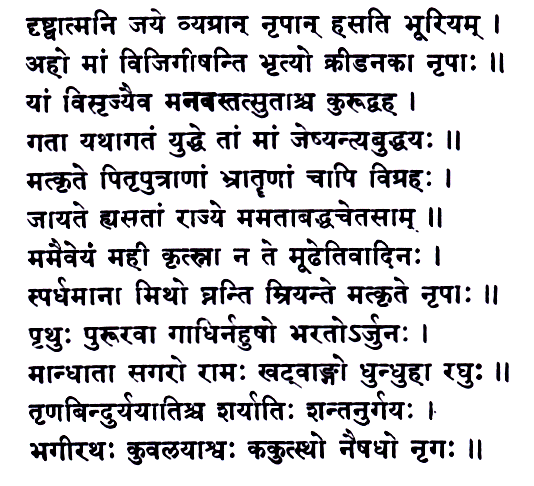 दृष्ट्वात्मनि जये व्यग्रान् नृपान् हसति भूरियम् ।
अहो मां विजिगीषन्ति भृत्यो क्रीडनका नृपाः ॥
यां विसृज्यैव मनवस्तत्सुताश्च कुरुद्वह ।
गता यथागतं युद्धे तां मां जेष्यन्त्यबुद्धयः ॥
मत्कृते पितृपुत्राणां भ्रातॄणां चापि विग्रहः ।
जायते ह्यसतां राज्ये ममताबद्धचेतसाम् ॥
ममैवेयं मही कृत्स्ना न ते मूढेतिवादिनः ।
स्पर्धमाना मिथो घ्नन्ति म्रियन्ते मत्कृते नृपाः ॥
पृथुः पुरूरवा गाधिर्नहुषो भरतोऽर्जुनः ।
मान्धाता सगरो रामः खट्वाङ्गो धुन्धुहा रघुः ॥
तृणबिन्दुर्ययातिश्च शर्यातिः शन्तनुर्गयः ।
भगीरथः कुवलयाश्वः ककुत्स्थो नैषधो नृगः ॥